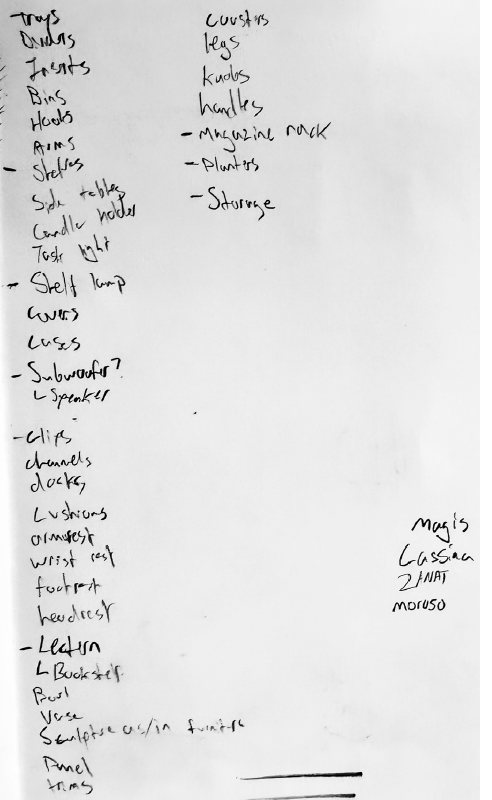 trays
Dividers
Inserts
Bins
Hooks
Arms
- Shelves
Side tables
Candle holder
Task light
- Shelf lamp
Covers
Cases
- Subwoofer?
└ Speaker
- Clips
channels
docks
Cushions
armrest
wrist rest
footrest
headrest
- Lectern
└ Bookshelf
Bowl
Vase
Sculpture as/in furniture
Panel
trims
Coasters
legs
knobs
handles
- Magazine rack
- Planters
- Storage
Magis
Cassina
ZANAT
Moroso